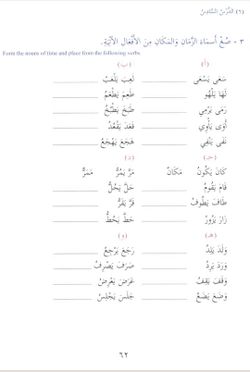 (٦) الدَّرْسُ السَّادِسُ
٣ - صُغْ أَسْمَاءَ الزَّمَانِ وَالمَكَانِ مِنَ الأَفْعَالِ الآتِيَةِ.
Form the nouns of time and place from the following verbs.
(أ) (ب)
سَعَى يَسْعَى لَعِبَ يَلْعَبُ
لَهَا يَلْهُو طَعِمَ يَطْعَمُ
رَمَى يَرْمِي طَبَخَ يَطْبُخُ
أَوَى يَأْوِي قَعَدَ يَقْعُدُ
نَفَى يَنْفِي هَجَعَ يَهْجَعُ
(جـ) (د)
كَانَ يَكُونُ مَكَانٌ مَرَّ يَمُرُّ مَمَرٌّ
قَامَ يَقُومُ حَلَّ يَحُلُّ
طَافَ يَطُوفُ قَرَّ يَقَرُّ
زَارَ يَزُورُ حَطَّ يَحُطُّ
(هـ) (و)
وَلَدَ يَلِدُ رَجَعَ يَرْجِعُ
وَرَدَ يَرِدُ صَرَفَ يَصْرِفُ
وَقَفَ يَقِفُ عَرَضَ يَعْرِضُ
وَضَعَ يَضَعُ جَلَسَ يَجْلِسُ
٦٢